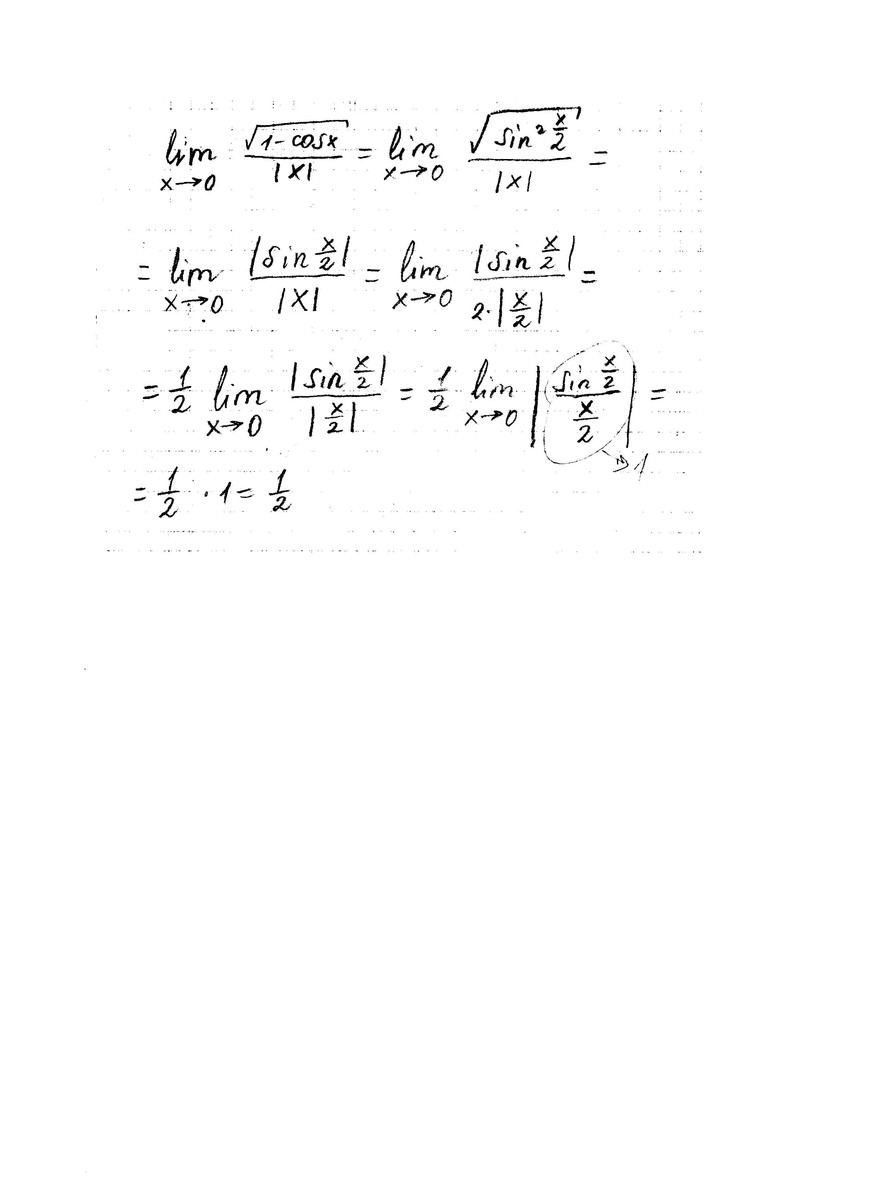 lim x→0 √(1-cosx) / |x| = lim x→0 √(sin² x/2) / |x| =
= lim x→0 |sin x/2| / |x| = lim x→0 |sin x/2| / 2·|x/2| =
= 1/2 lim x→0 |sin x/2| / |x/2| = 1/2 lim x→0 | sin x/2 / x/2 | =
→1
= 1/2 · 1 = 1/2